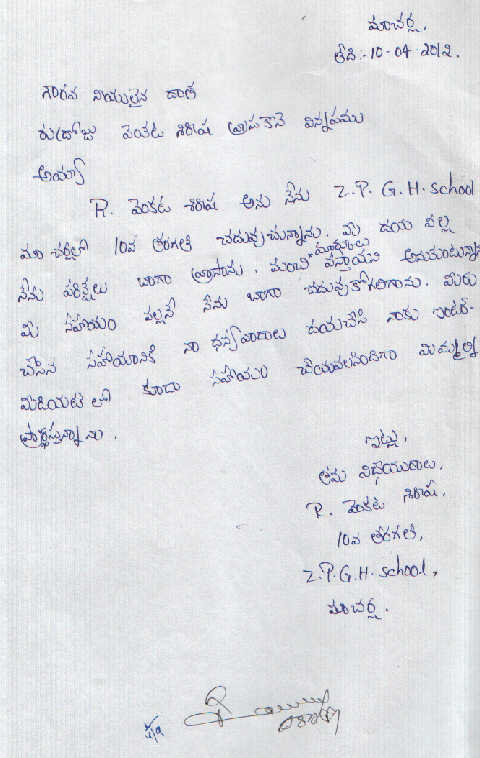 మాచర్ల,
తేది:- 10-04-2012.
గౌరవ నీయులైన దాత
రుద్రోజు వెంకట శిరీష వ్రాసుకొనే విన్నపము
అయ్యా
R. వెంకట శిరీష అను నేను Z.P.G.H. school
మాచర్లలో 10వ తరగతి చదువుచున్నాను. మీ దయ వల్ల
నేను పరీక్షలు బాగా వ్రాసాను. మంచి మార్కులు వస్తాయని అనుకుంటున్నా
మీ సహాయం వల్లనే నేను బాగా చదువుకోగలిగాను. మీరు
చేసిన సహాయానికి నా ధన్యవాదాలు దయచేసి నాకు ఇంటర్-
మీడియట్ లో కూడా సహాయం చేయవలసిందిగా మిమ్మల్ని
ప్రార్థిస్తున్నాను.
ఇట్లు,
తమ విధేయురాలు,
R. వెంకట శిరీష,
10వ తరగతి,
Z.P.G.H. school,
మాచర్ల.